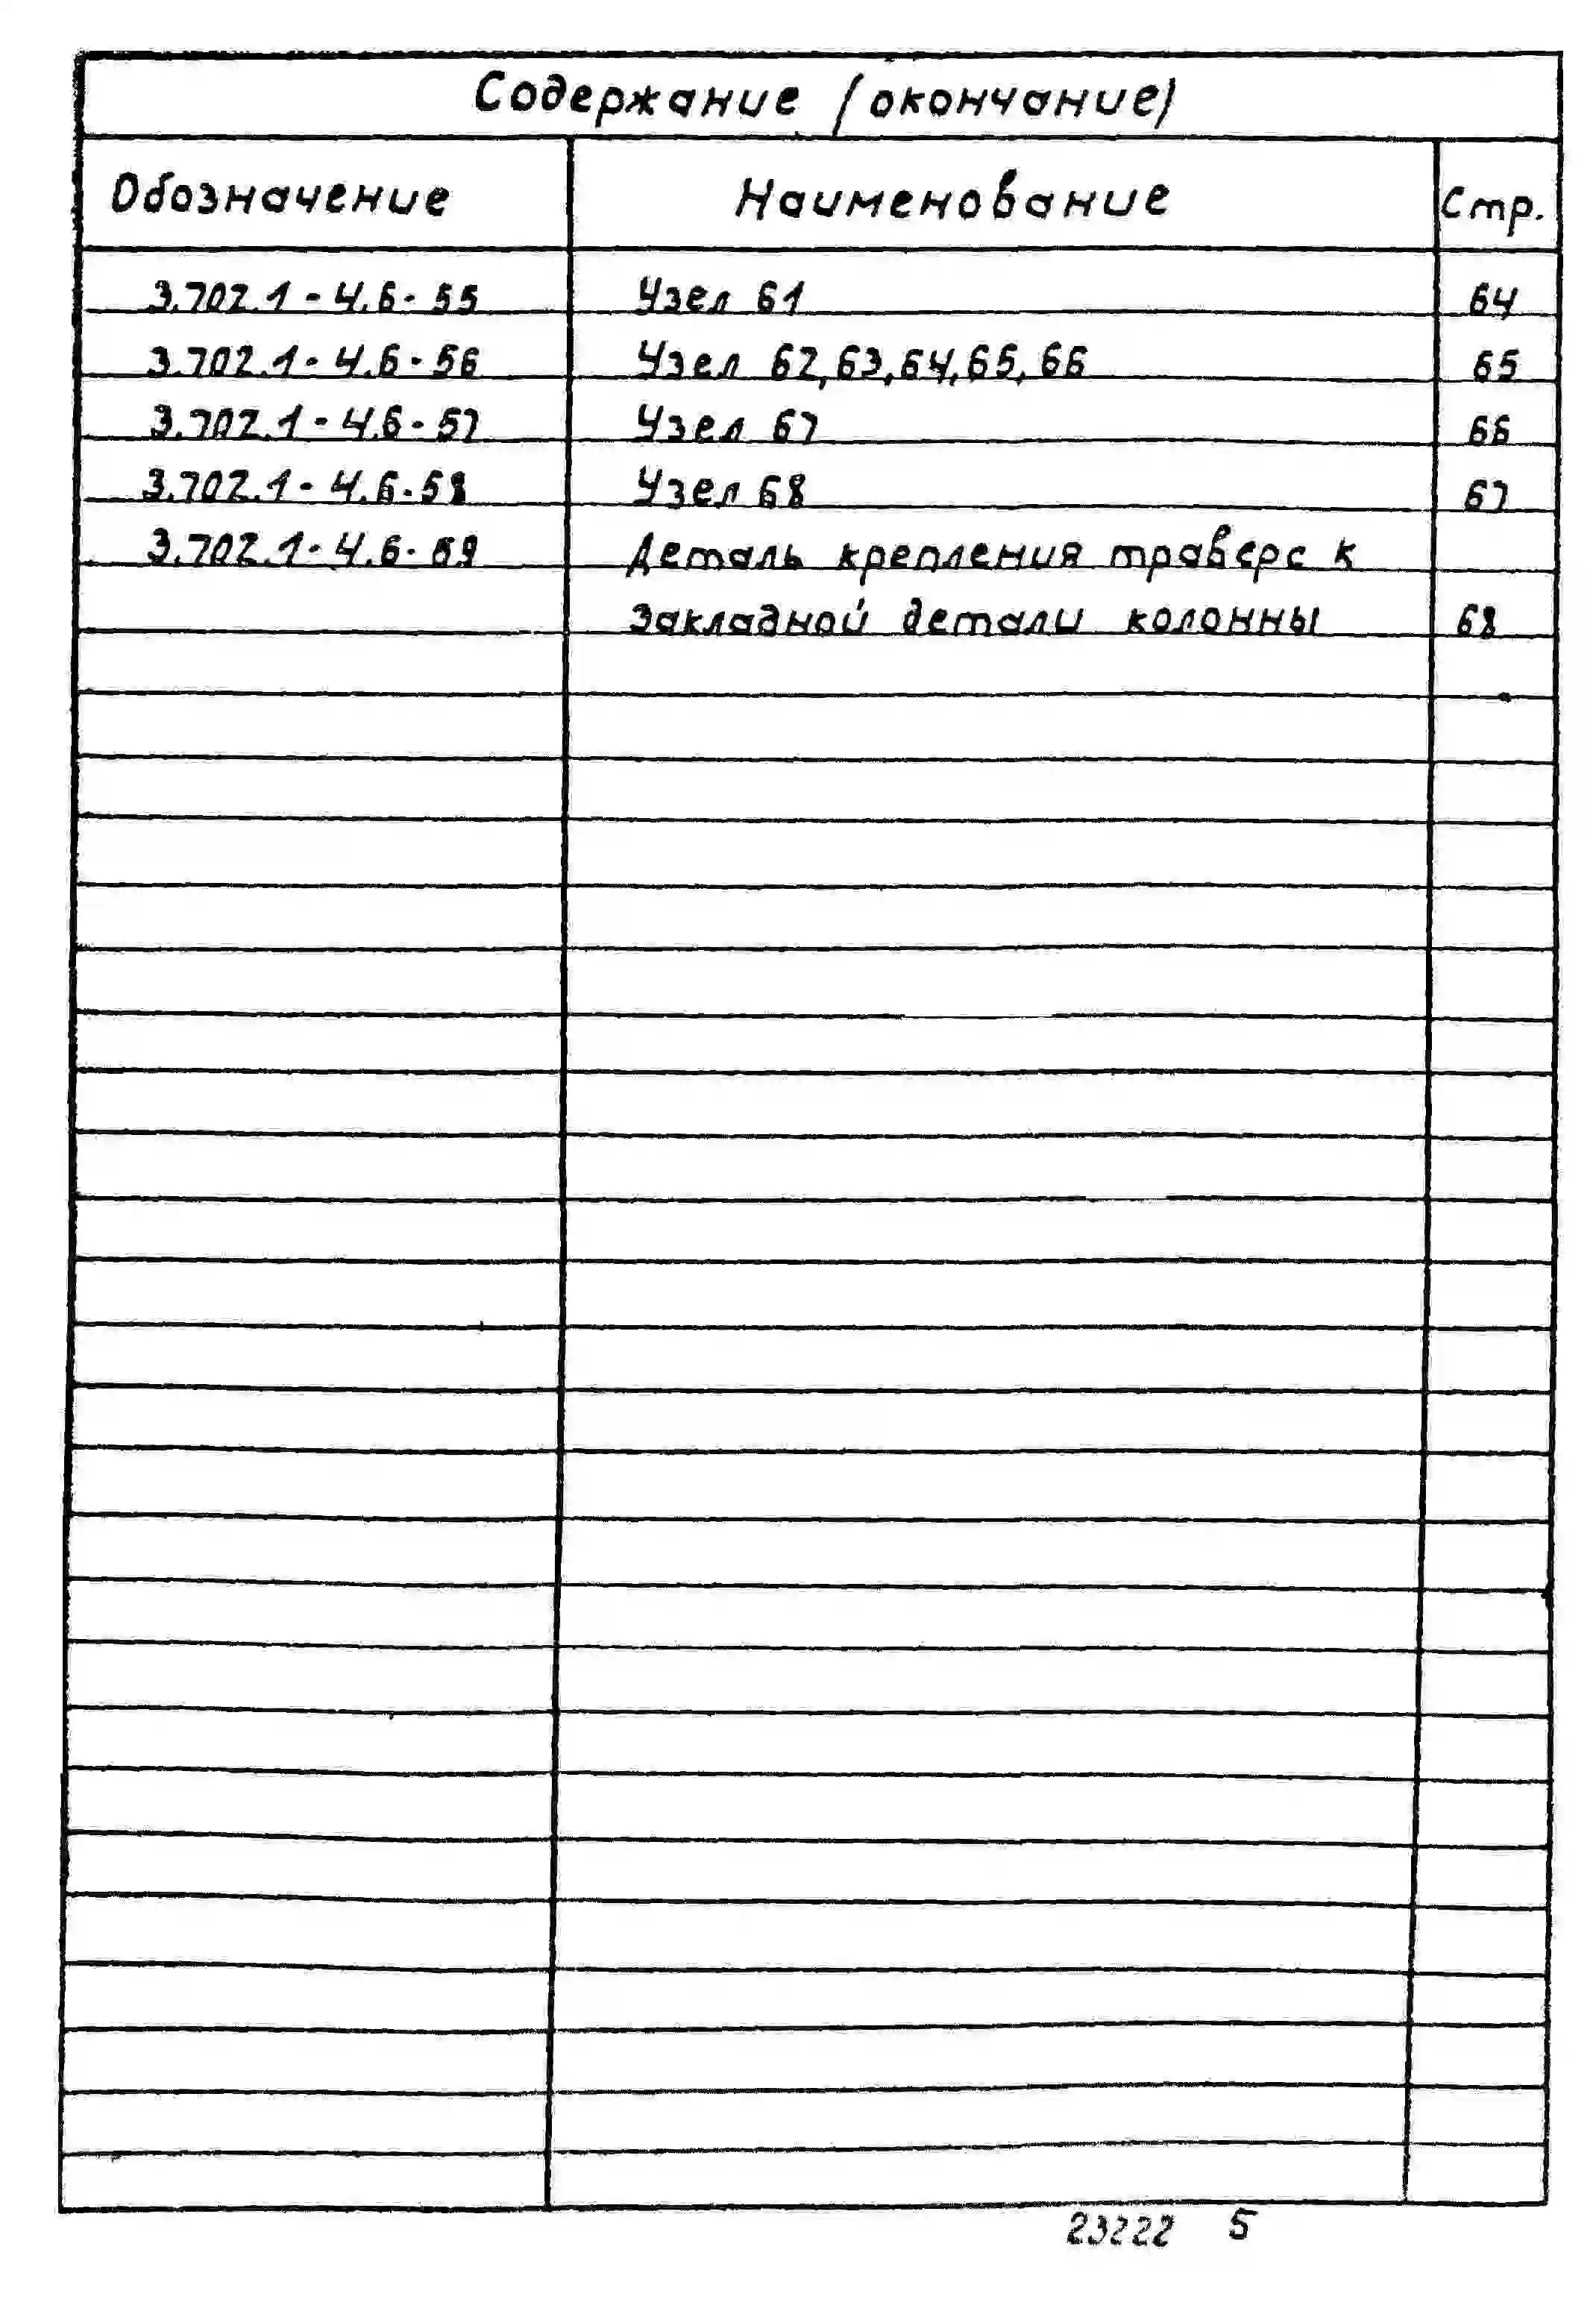 Содержание (окончание)
Обозначение Наименование Стр.
3.702.1-4.6-55 Узел 61 64
3.702.1-4.6-56 Узел 62,63,64,65,66 65
3.702.1-4.6-57 Узел 67 66
3.702.1-4.6-58 Узел 68 67
3.702.1-4.6-59 Деталь крепления траверс к
закладной детали колонны 68
23222 5